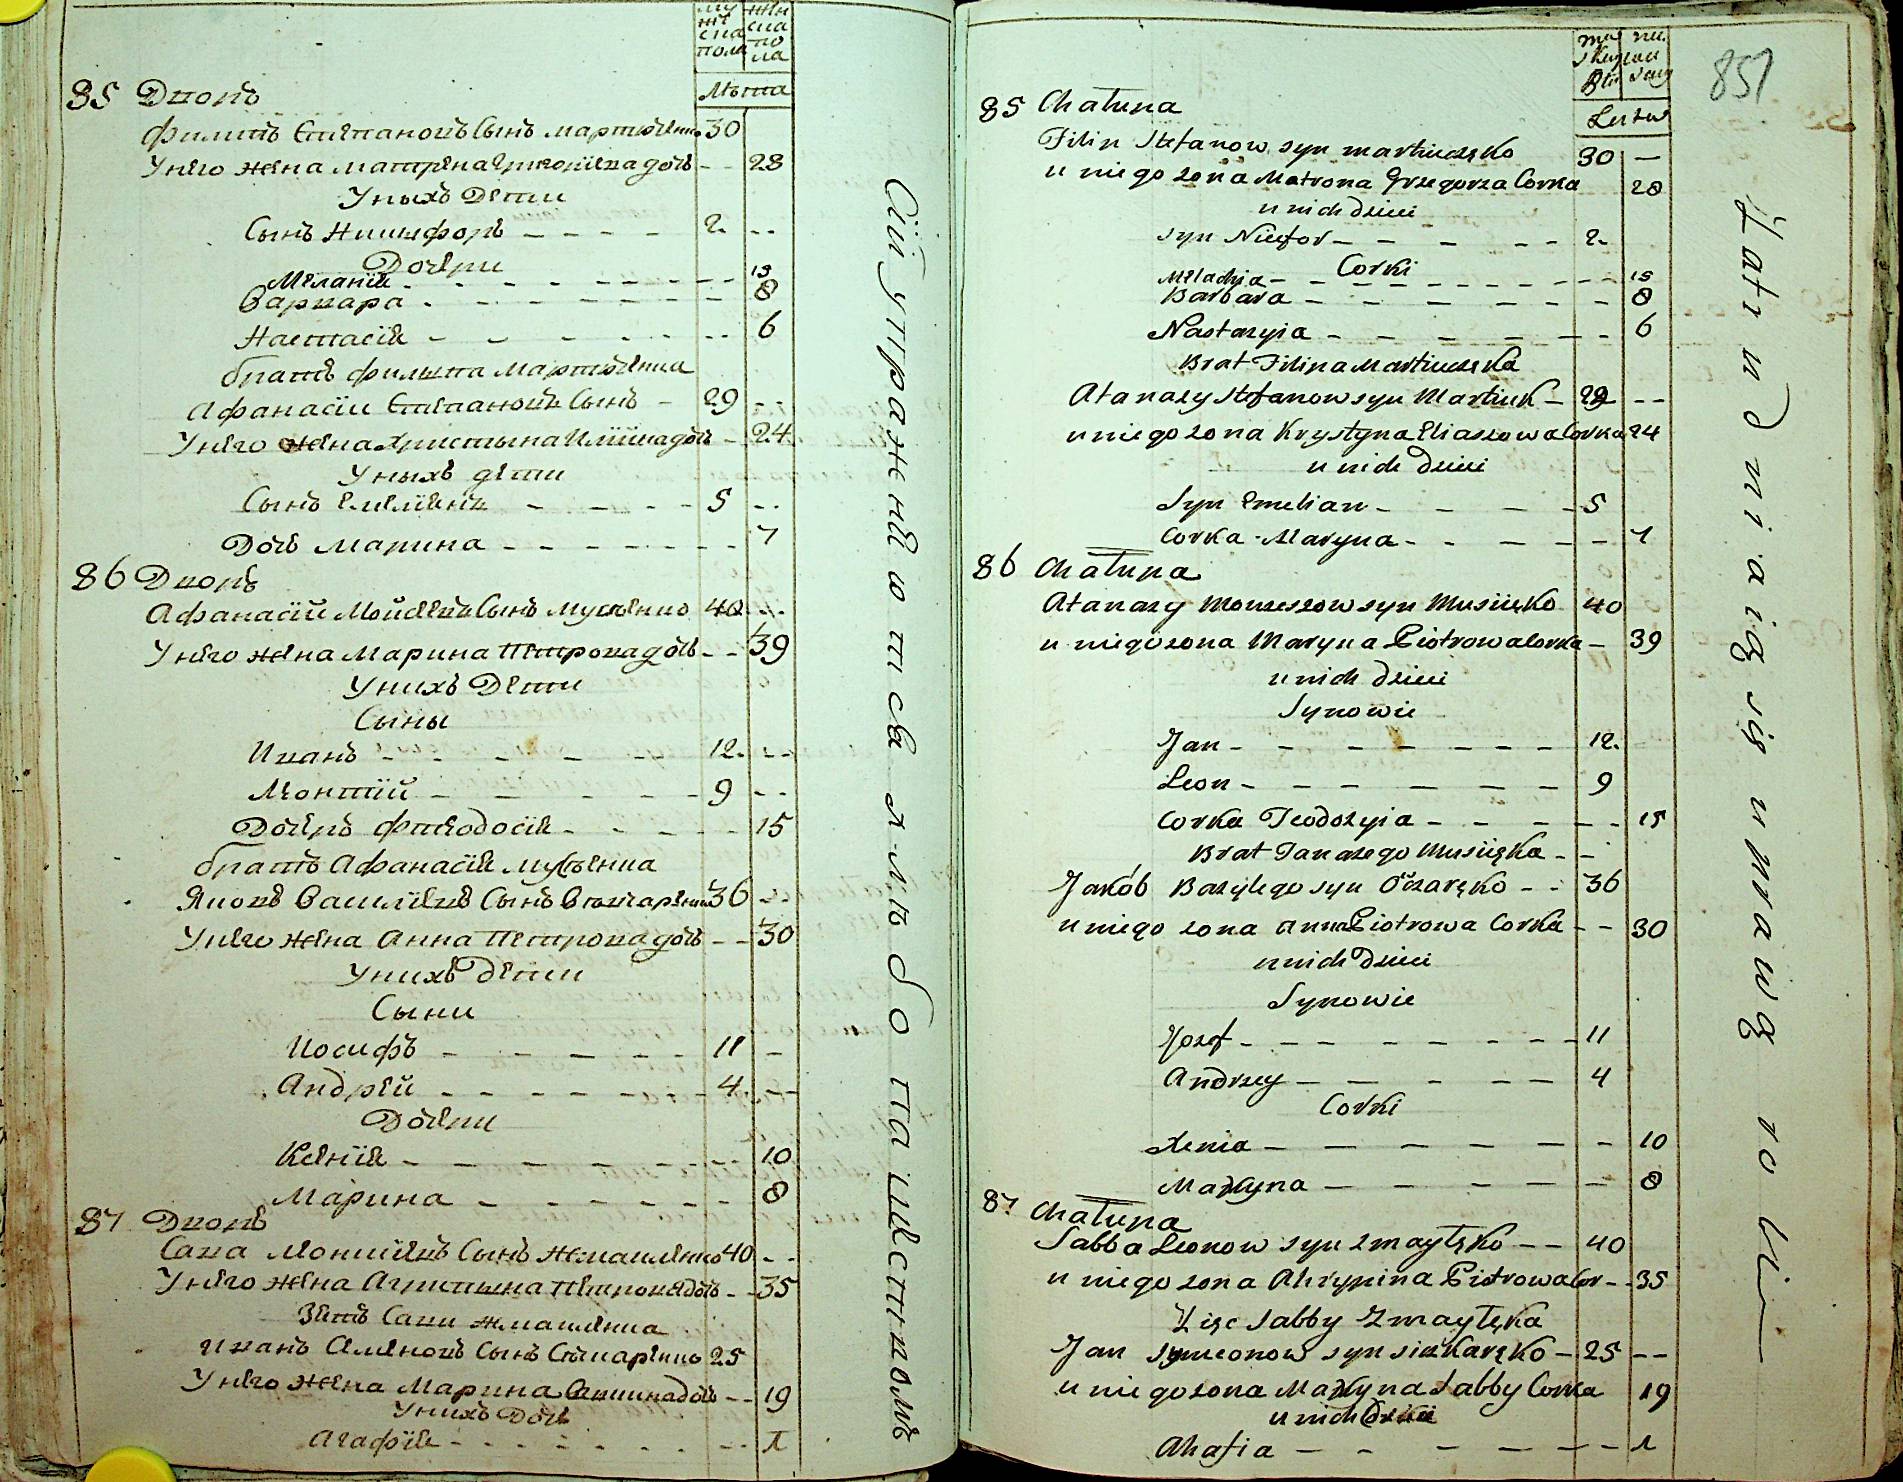 мужеска пола
женска пола
Лѣта
85 Дворъ
Филипъ Степановъ Сынъ Мартюченко 30
Унего жена Матрена Григоріева дочь - - 28
Унихъ Дети
Сынъ Никифоръ - - - - 2. - -
Дочери
Меланія - - - - - - 13
Варвара - - - - - - 8
Настасія - - - - - 6
братъ Филипа Мартюченка
Афанасіи Степановъ Сынъ - 29 - -
Унего жена Христына Иліина дочь - 24
Унихъ дети
Сынъ Емеліянъ - - - - 5 - -
Дочь Марина - - - - - - 7
86 Дворъ
Афанасій Мойсеевъ Сынъ Мусіенко 40 - -
Унего жена Марина Петрова дочь - - 39
Унихъ Дети
Сыны
Иванъ - - - - - 12. - -
Леонтій - - - - - 9 - -
Дочерь Фтеодосія - - - - - 15
братъ Афанасія Мусіенка
Яковъ Василіевъ Сынъ 36 - -
Унего жена Анна Петрова дочь - - 30
Унихъ дети
Сыни
Иосифъ - - - - - 11 -
Андрей - - - - - - 4 - -
Дочери
Ксенія - - - - - - 10
Марина - - - - - - 8
87 Дворъ
Сава Леонтіевъ Сынъ 40 - -
Унего жена Петрова дочь - - 35
Зять Сави
Иванъ Семеновъ Сынъ 25
Унего жена Марина Савина дочь - - 19
Унихъ Дочь
Агафія - - - - - - - 1
Сіи упражняются хлѣбопашествомъ
851
Letnw
85 Chatupa
Filip Stefanow syn Martiuczęko 30 —
u niego zona Matrona Grzegorza Corka 28
u nich dzieci
syn Nicefor - - - - - 2.
Corki
Meladyia - - - - - - - 13
Barbara - - - - - - 8
Nastazyia - - - - - - 6
Brat Filipa Martiuczęka
Atanazy Stefanow syn Martiuk - 29 - -
u niego zona Krystyna Eliaszowa Corka 24
u nich dzieci
Syn Emelian - - - - - 5
Corka Maryna - - - - - - 7
86 Chatupa
Atanazy Mouzeszow syn Musiięko 40
u niego zona Maryna Piotrowa Corka - 39
u nich dzieci
Synowie
Jan - - - - - - - 12.
Leon - - - - - - - 9
Corka Teodozyia - - - - - 15
Brat Tanazego Musiięka - -
Jakób Bazylego syn Oczaręko - - 36
u niego zona Anna Piotrowa Corka - - 30
u nich Dzieci
Synowie
Jozef - - - - - - - - 11
Andrzey - - - - - 4
Corki
Xenia - - - - - - - 10
Maryna - - - - - - 8
87. Chatupa
Sabba Leonow syn Zmaytęko - - 40
u niego zona Ahrypina Piotrowa Cor - - 35
Zięc Sabby Zmaytęka
Jan Symeonow syn Siukaręko - 25 - -
u niego zona Maryna Sabby Corka 19
u nich Corka
Ahafia - - - - - - - 1
Zatrudniaią się uprawą roli